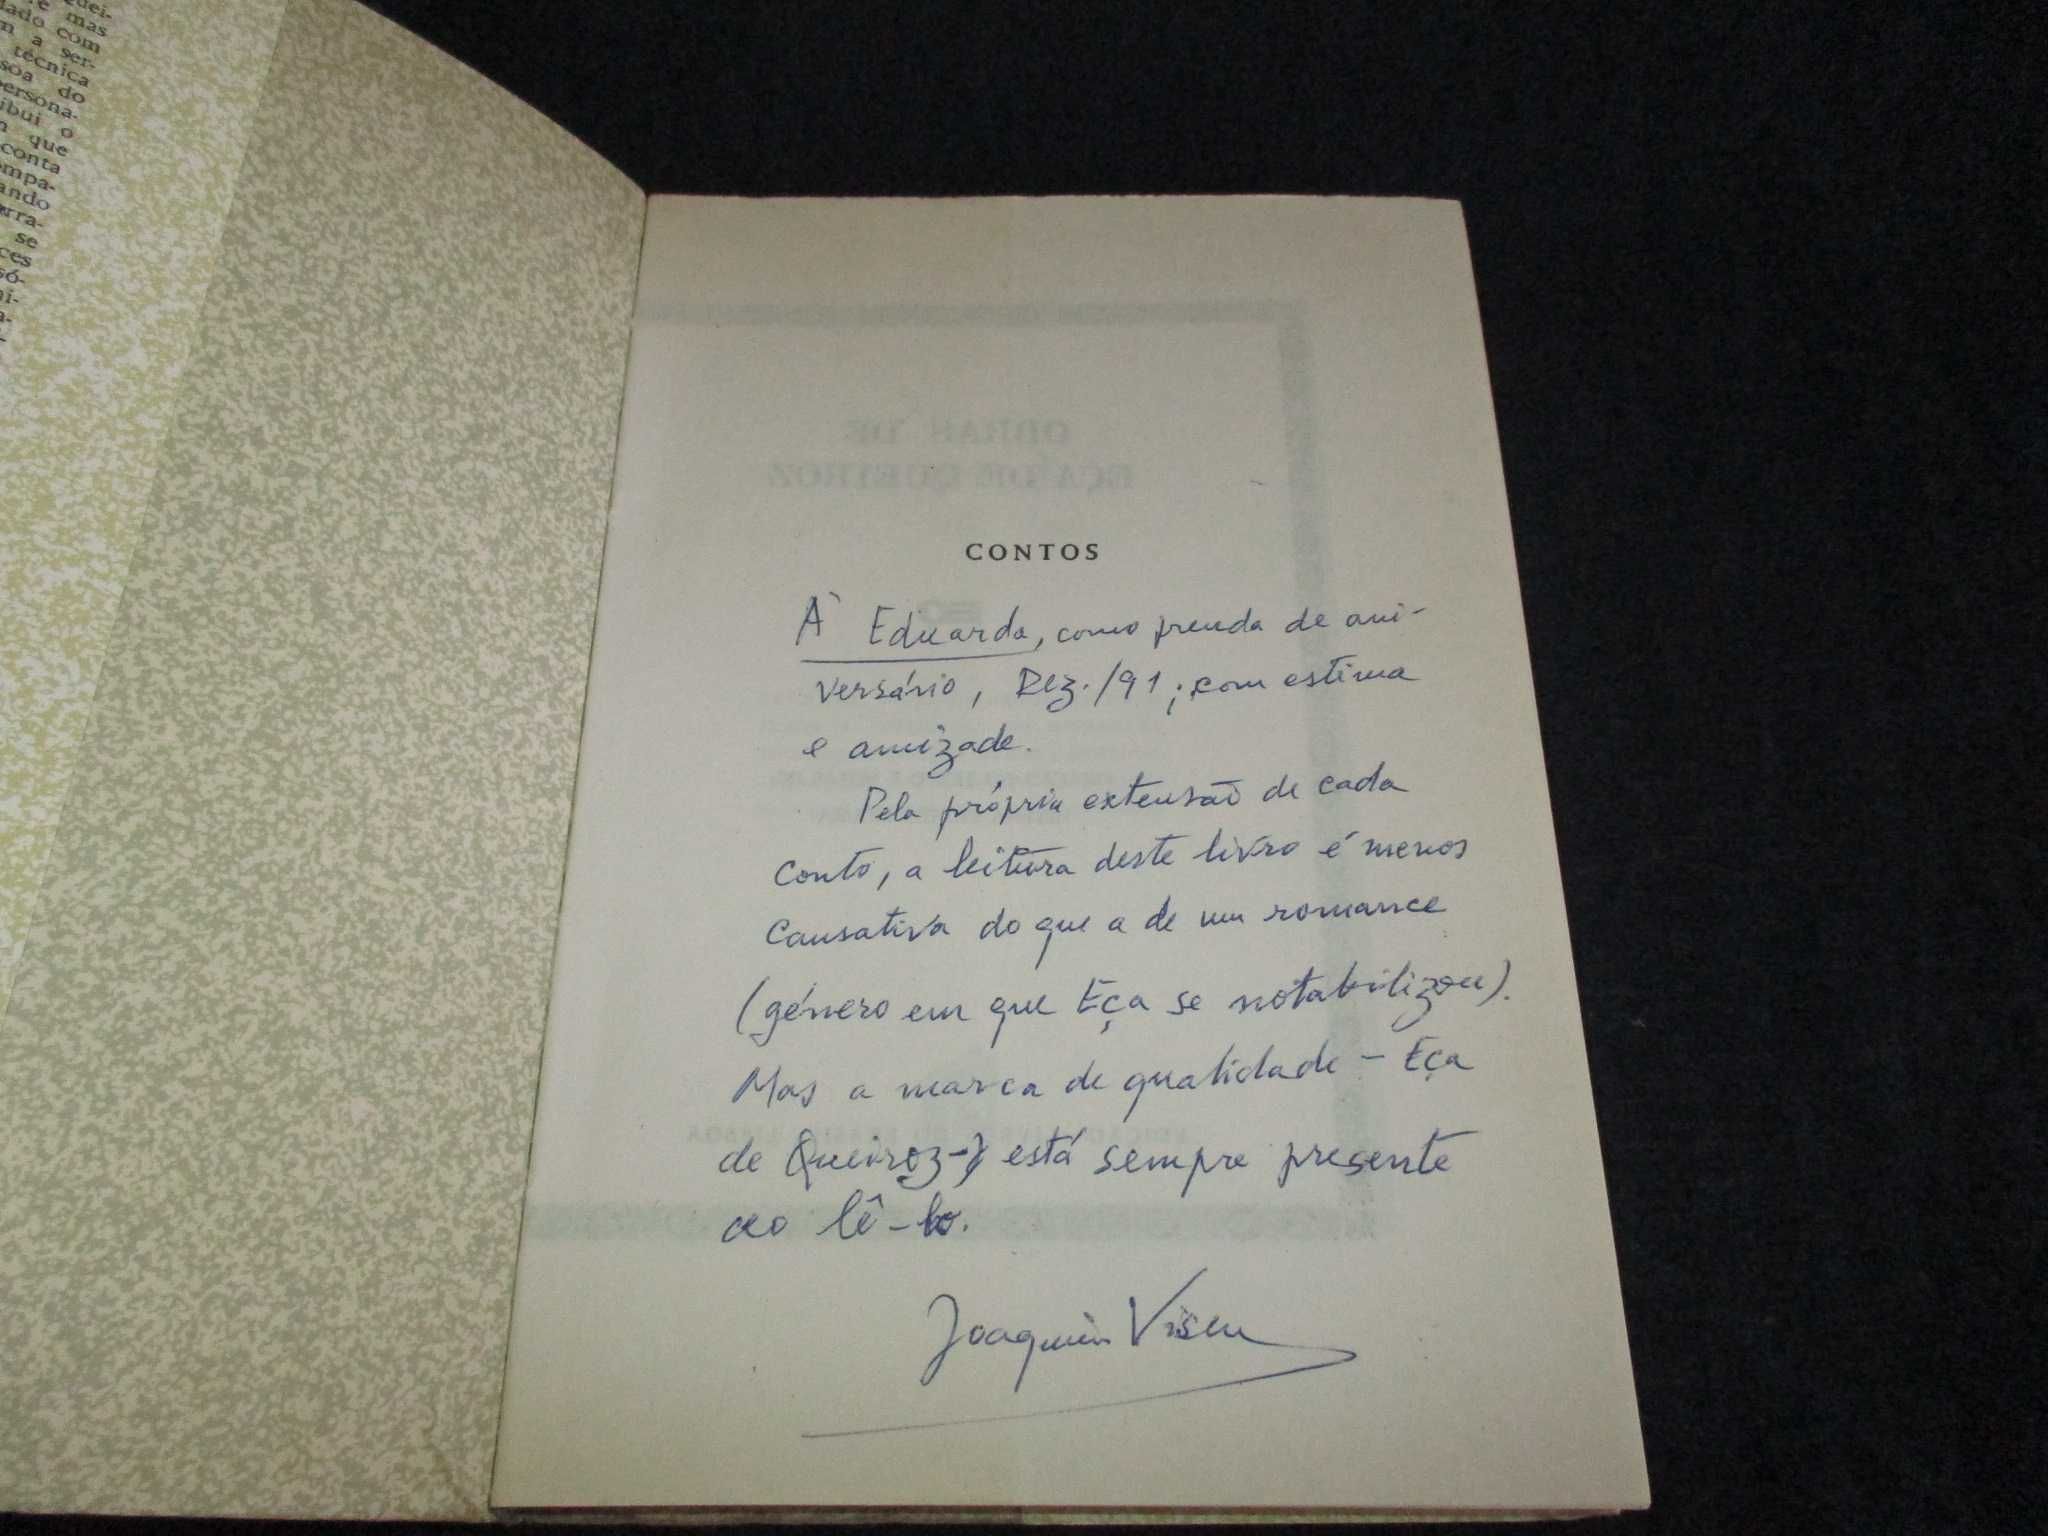 quei-
mas
dado com
a ser-
técnica
soa do
persona-
ibui o
que
conta
ompa-
ando
rra-
se
ces
só-
ni-
a-
OBRAS DE
EÇA DE QUEIROZ
CONTOS
À Eduarda, como prenda de ani-
versário, Dez./91; com estima
e amizade.
Pela própria extensão de cada
conto, a leitura deste livro é menos
causativa do que a de um romance
(género em que Eça se notabilizou).
Mas a marca de qualidade - Eça
de Queiroz - está sempre presente
ao lê-lo.
Joaquim Viseu